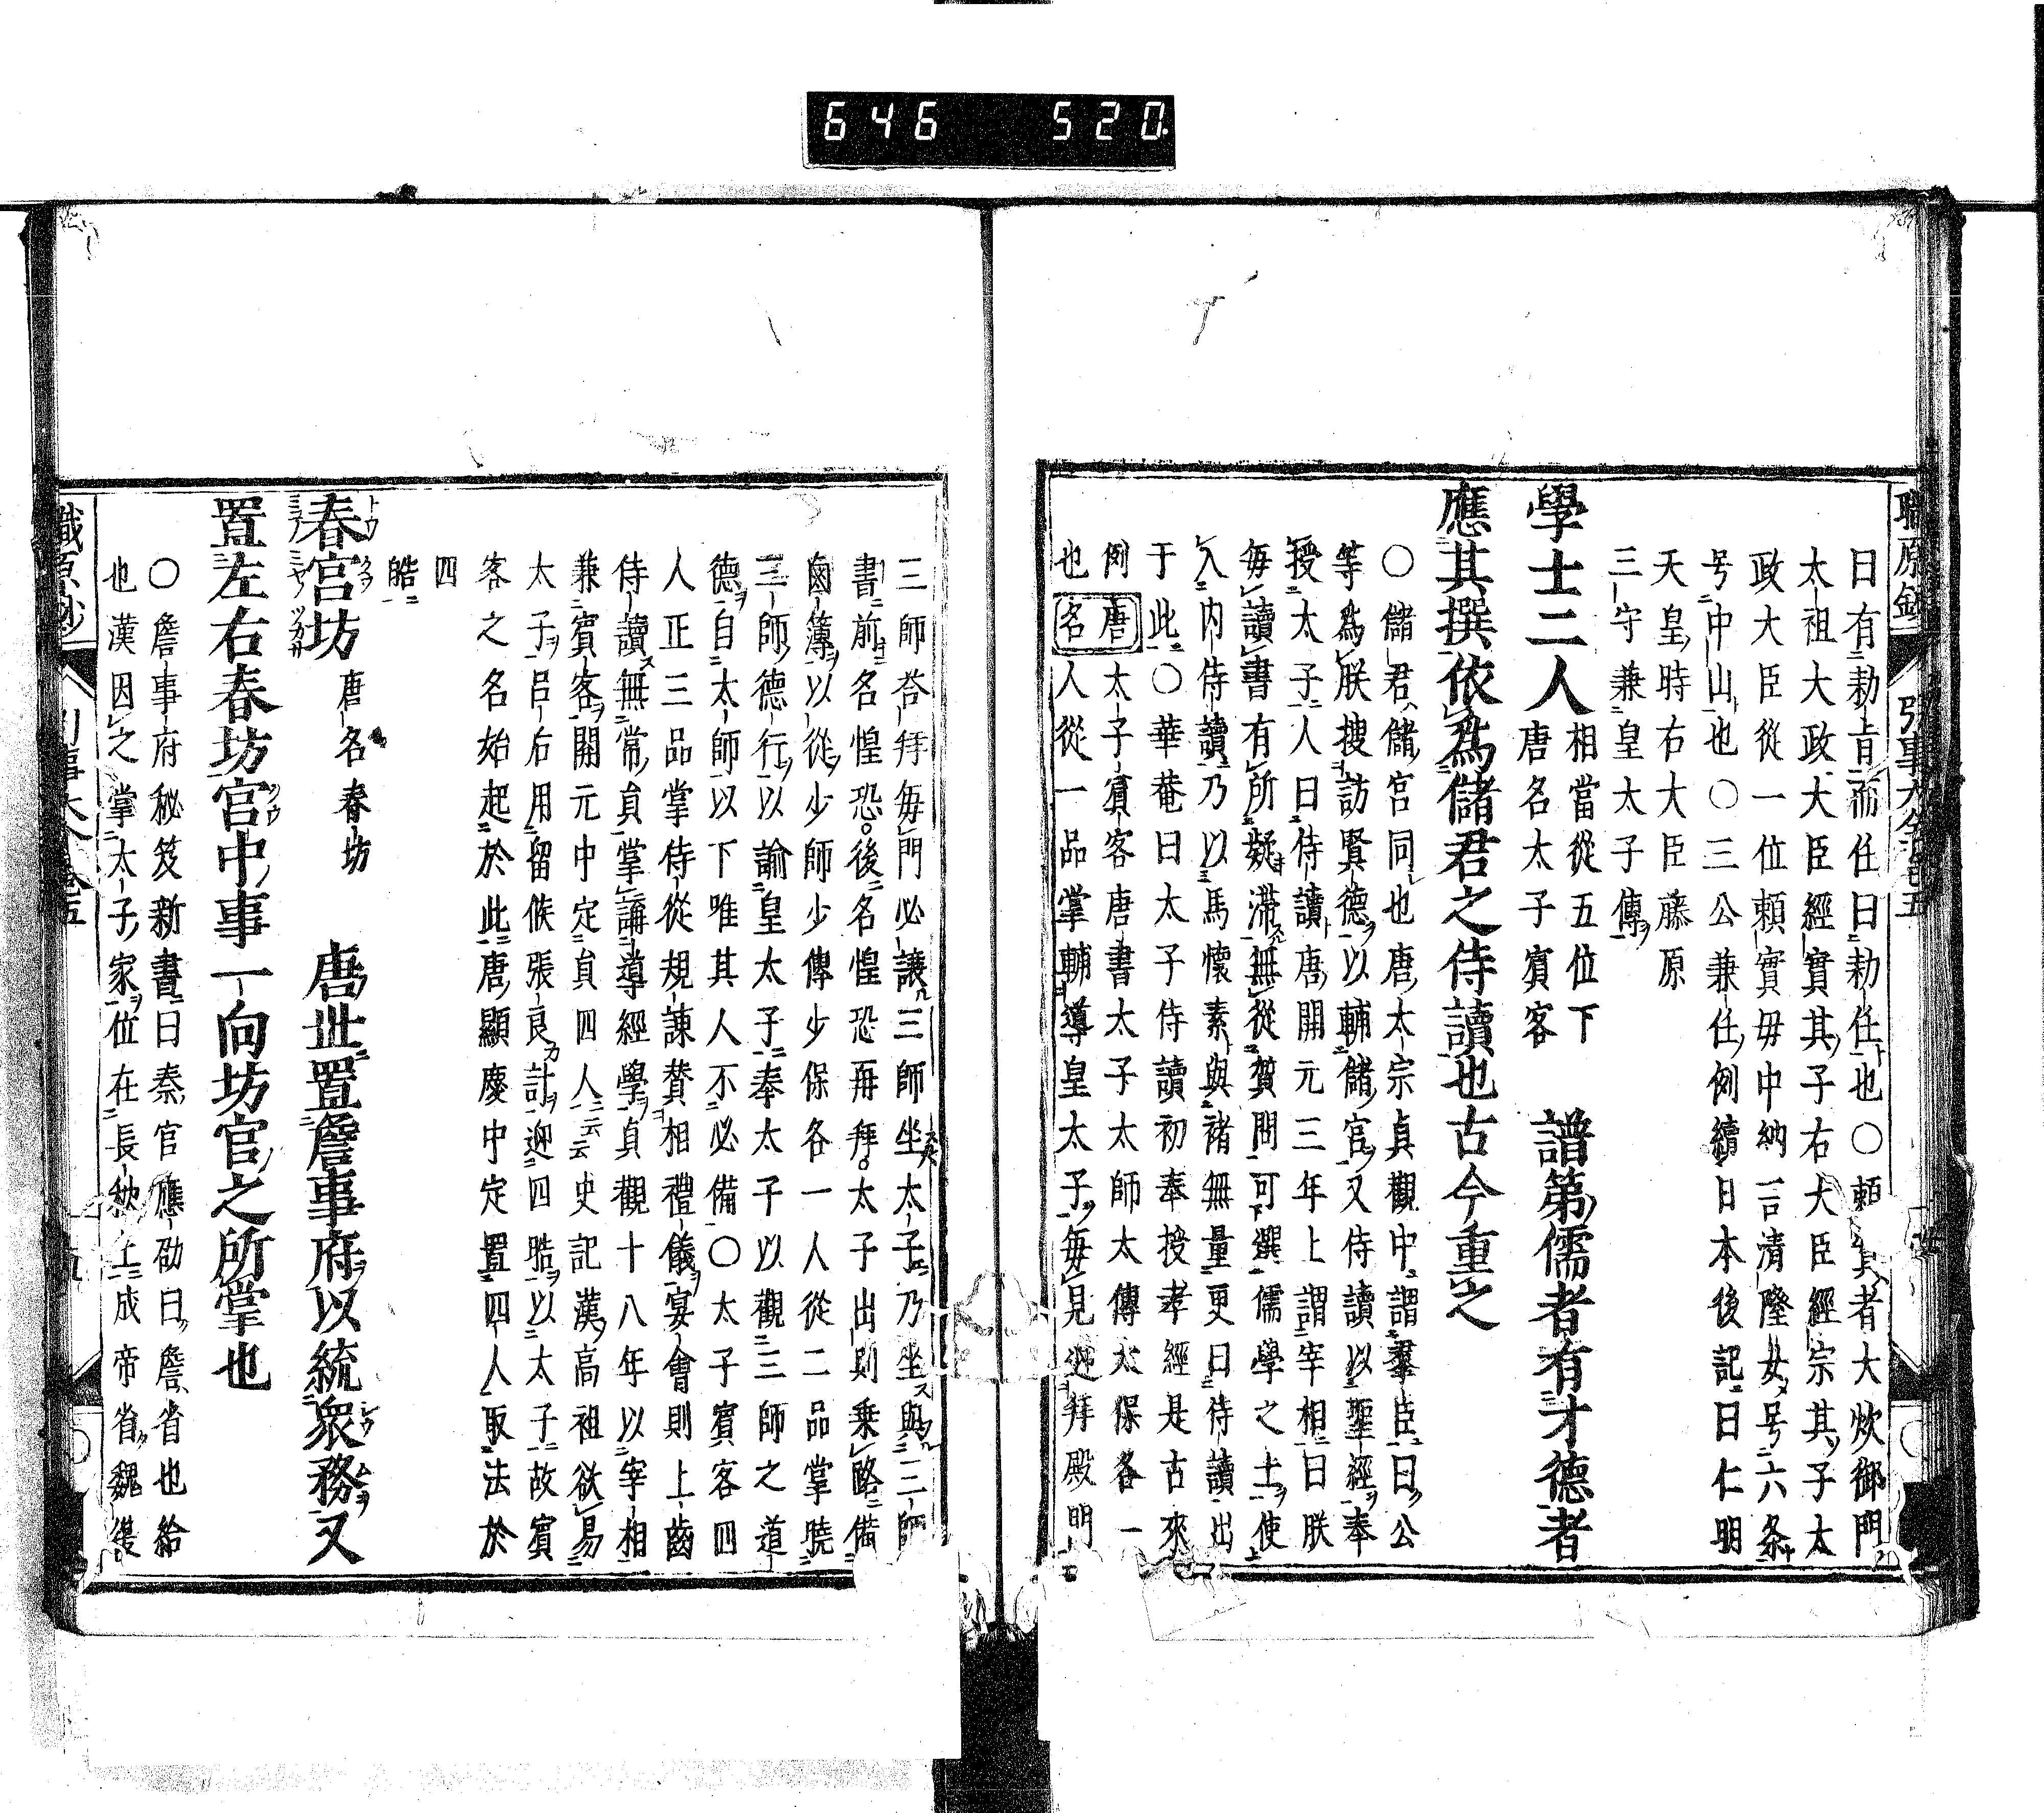 646 520.
職原鈔
引事大全卷五
曰有勅旨而任曰勅任也○頼實者大炊御門
太祖大政大臣經實其子右大臣經宗其子太
政大臣從一位頼實毋中納言清隆女号六条
号中山也○三公兼任例續日本後記曰仁明
天皇時右大臣藤原
三守兼皇太子傳
學士二人
相當從五位下
唐名太子賓客
譜第儒者有才德者
應其撰依爲儲君之侍讀也古今重之
○儲君儲宮同也唐太宗貞觀中謂羣臣曰公
等為朕搜訪賢德以輔儲宮又侍讀以聖經奉
授太子人曰侍讀唐開元三年上謂宰相曰朕
每讀書有所疑滞無從質問可選儒學之士使
入內侍讀乃以馬懷素與褚無量更曰侍讀出
于此○華菴曰太子侍讀初奉授孝經是古來
例 唐 太子賓客唐書太子太師太傳太保各一
也 名 人從一品掌輔導皇太子每見迎拜殿門
三師荅拜每門必讓三師坐太子乃坐與三師
書前名惶恐後名惶恐再拜太子出則乘略備
鹵簿以從少師少傳少保各一人從二品掌曉
三師德行以諭皇太子奉太子以觀三師之道
德自太師以下唯其人不必備○太子賓客四
人正三品掌侍從規諫賛相禮儀宴會則上齒
侍讀無常員掌講導經學貞觀十八年以宰相
兼賓客開元中定員四人云云史記漢高祖欲易
太子呂后用留候張良計迎四晧以太子故賓
客之名始起於此唐顯慶中定置四人取法於
四
皓
春宮坊
唐名春坊
唐世置詹事府以統衆務又
置左右春坊宮中事一向坊官之所掌也
○詹事府秘笈新書曰秦官應劭曰詹省也給
也漢因之掌太子家位在長秋上成帝省魏復
職原鈔
引事大全卷五